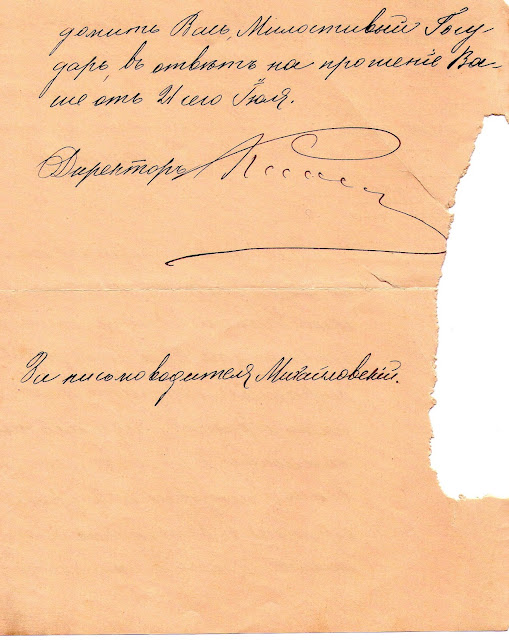 домить Васъ, Милостивый Госу-
дарь, въ отвѣтъ на прошеніе Ва-
ше отъ 21 сего Іюля.
Директоръ
За письмоводителя Михайловскій.